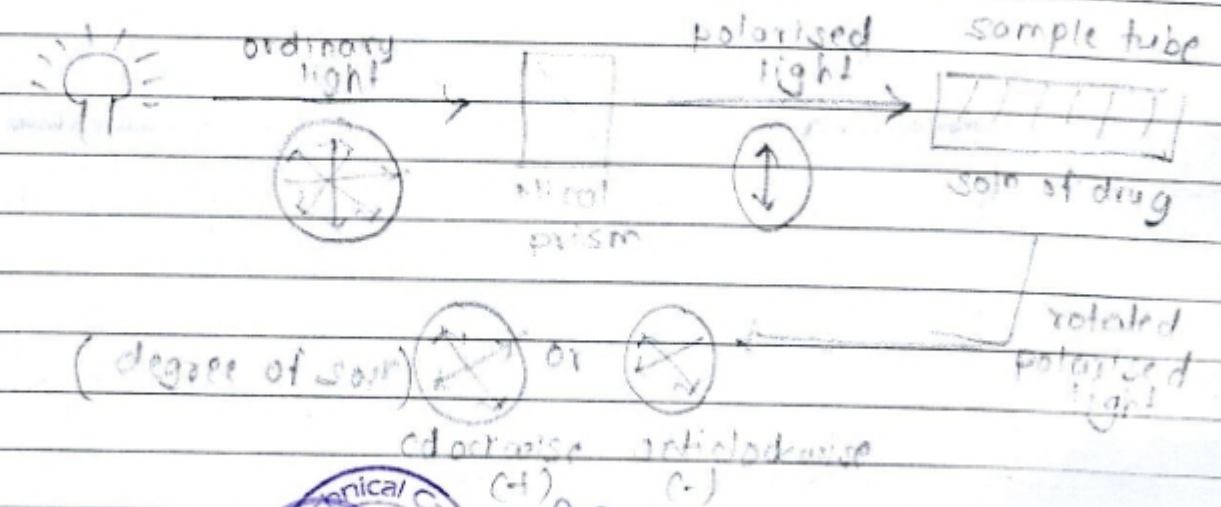 ordinary light
polarised light
sample tube
Nicol prism
soln of drug
rotated polarized light
(degree of soln)
or
clockwise (+)
anticlockwise (-)
nical C